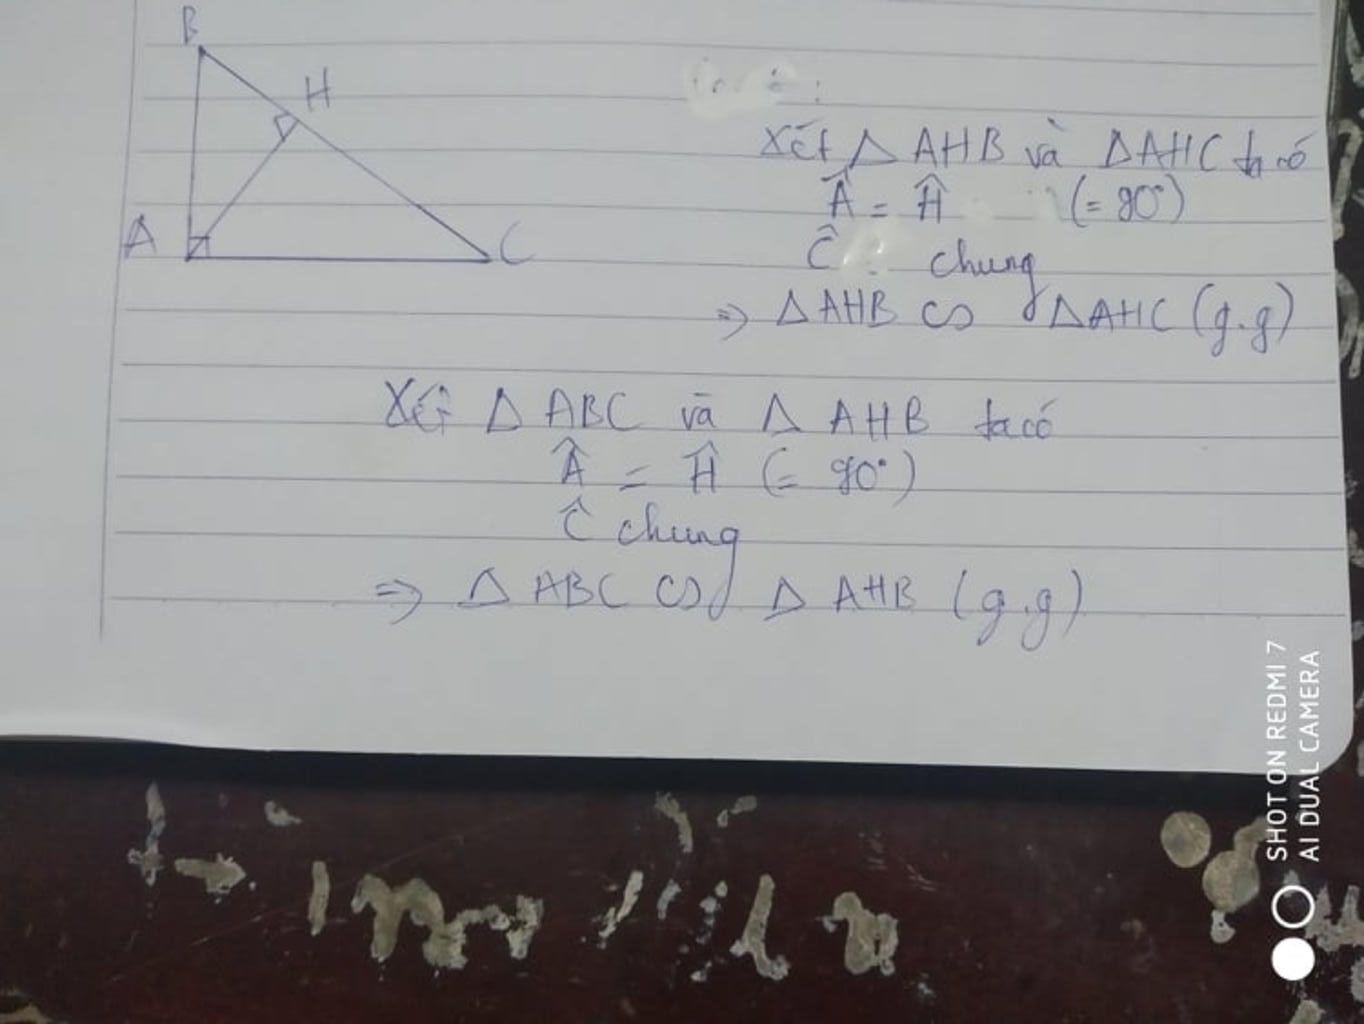 B
H
A
C
Xét △ AHB và △AHC ta có
Â = Ĥ (= 90°)
Ĉ chung
=> △AHB ∽ △AHC (g.g)
Xét △ ABC và △ AHB ta có
Â = Ĥ (= 90°)
Ĉ chung
=> △ ABC ∽ △ AHB (g.g)
SHOT ON REDMI 7
AI DUAL CAMERA